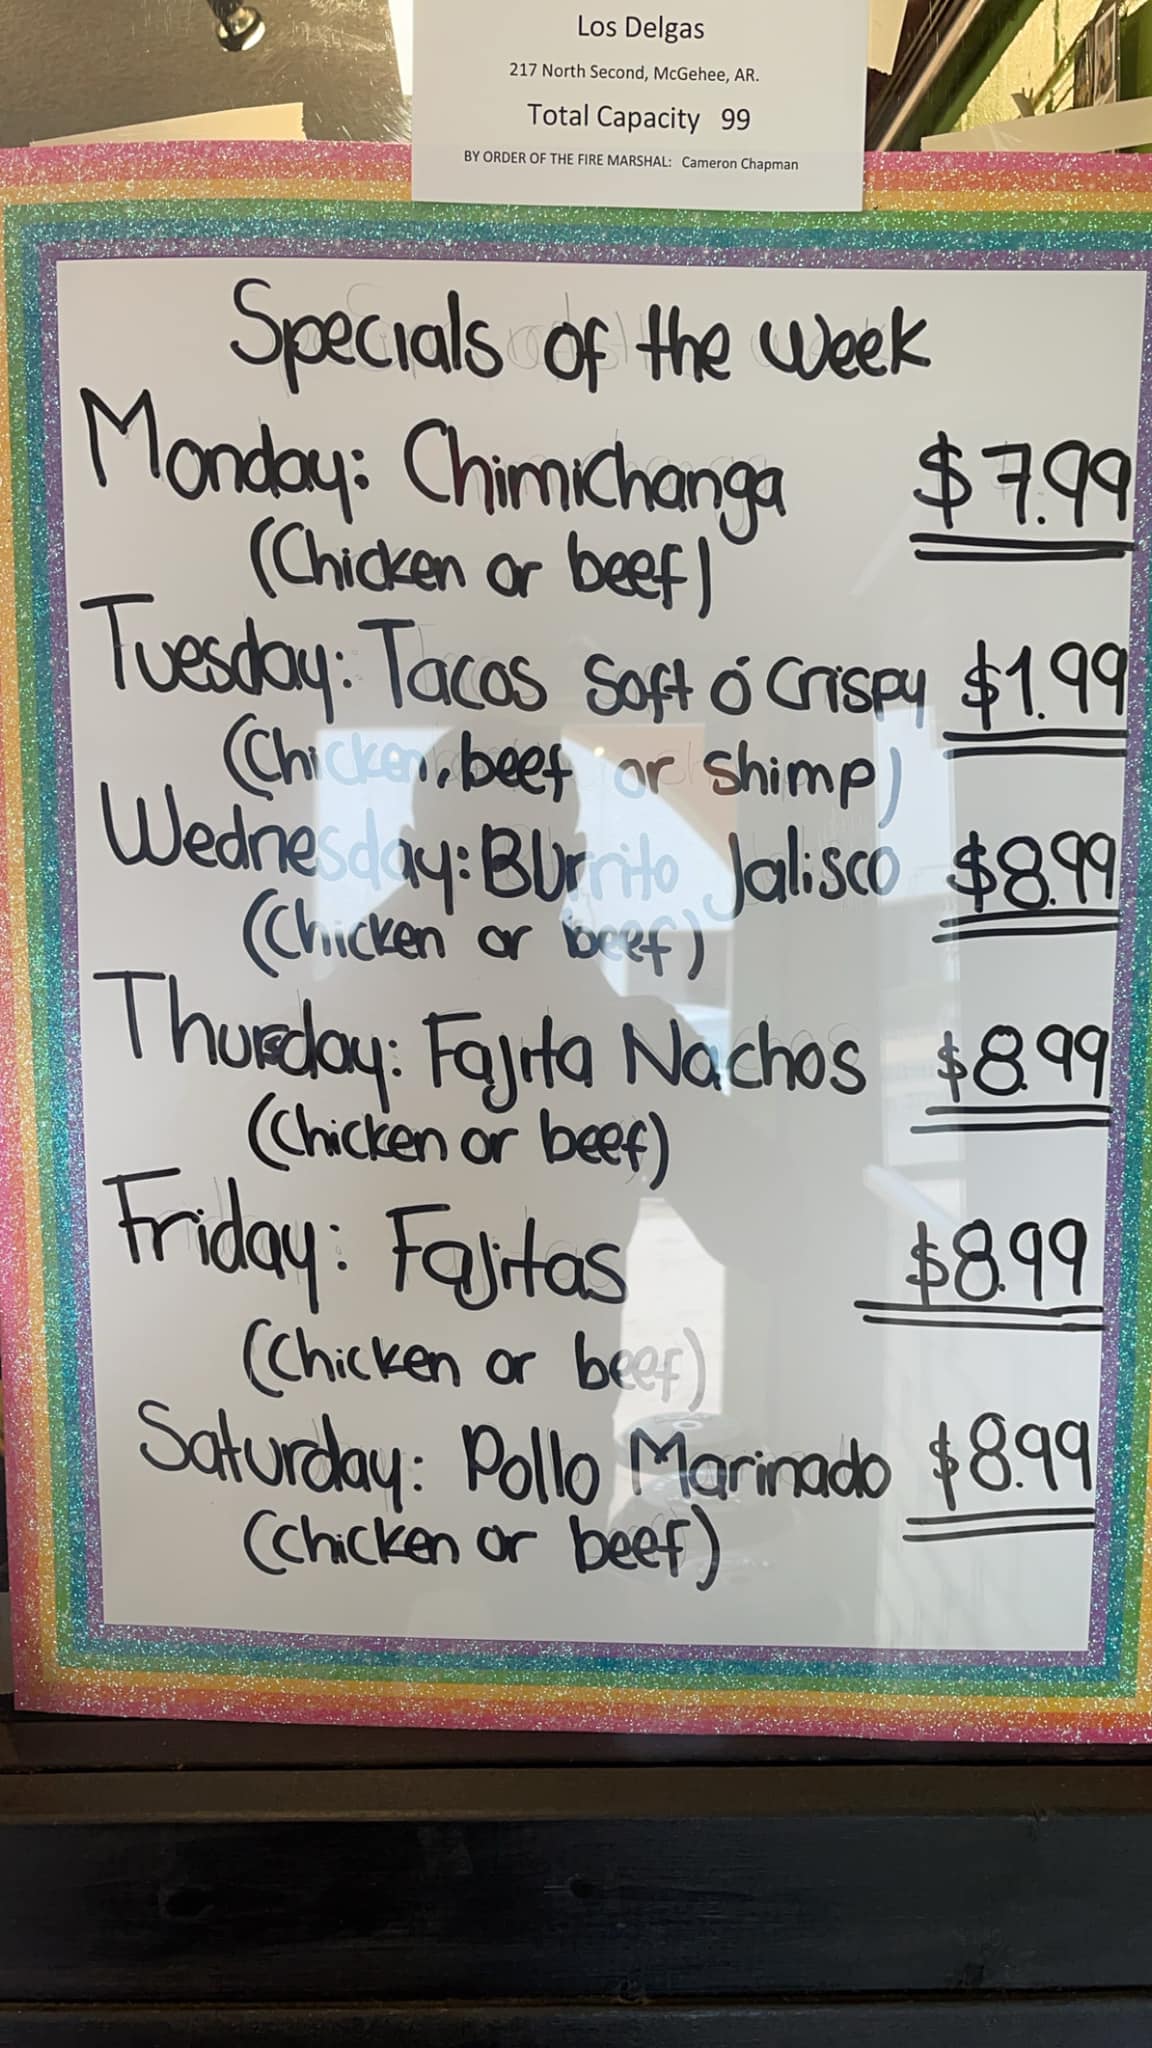 Los Delgas
217 North Second, McGehee, AR.
Total Capacity 99
BY ORDER OF THE FIRE MARSHAL: Cameron Chapman
Specials of the Week
Monday: Chimichanga $7.99
(Chicken or beef)
Tuesday: Tacos Soft ó Crispy $1.99
(Chicken, beef or shimp)
Wednesday: BUrrito Jalisco $8.99
(Chicken or beef)
Thursday: Fajita Nachos $8.99
(Chicken or beef)
Friday: Fajitas $8.99
(Chicken or beef)
Saturday: Pollo Marinado $8.99
(chicken or beef)